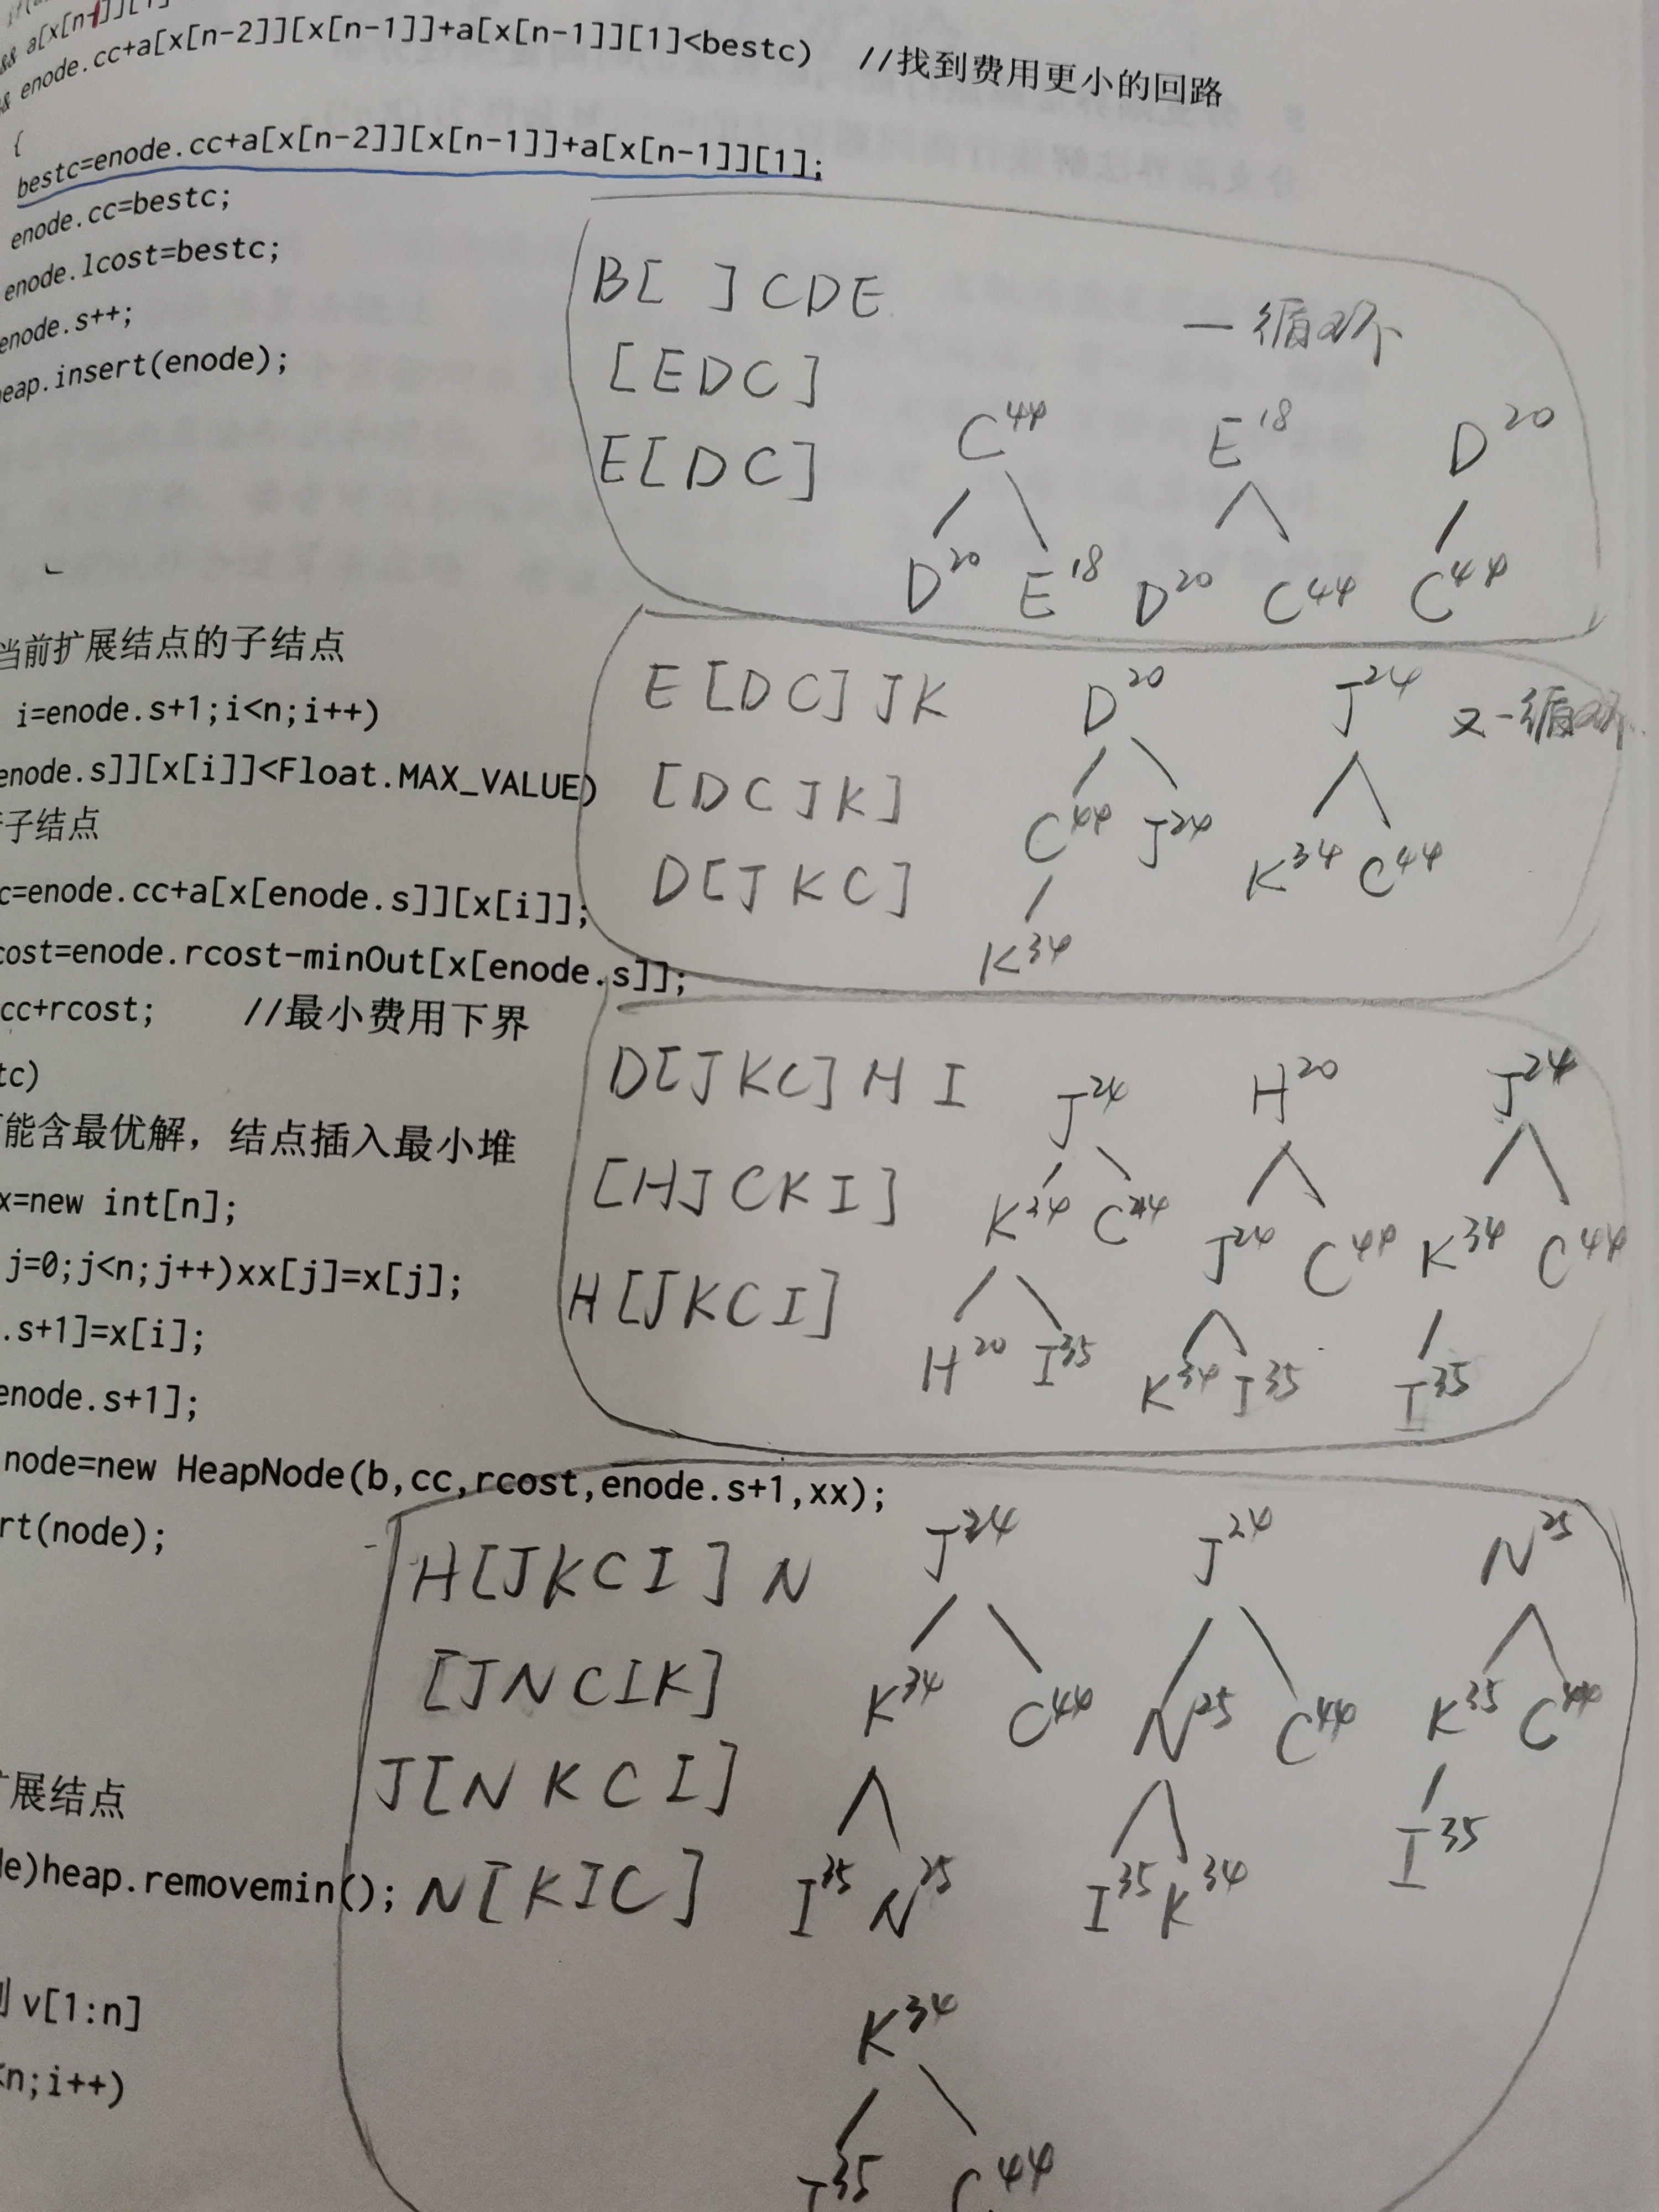 && a[x[n-1]][1]
enode.cc+a[x[n-2]][x[n-1]]+a[x[n-1]][1]<bestc) //找到费用更小的回路
{
bestc=enode.cc+a[x[n-2]][x[n-1]]+a[x[n-1]][1];
enode.cc=bestc;
enode.lcost=bestc;
enode.s++;
eap.insert(enode);
当前扩展结点的子结点
i=enode.s+1;i<n;i++)
enode.s]][x[i]]<Float.MAX_VALUE)
子结点
c=enode.cc+a[x[enode.s]][x[i]];
cost=enode.rcost-minOut[x[enode.s]];
cc+rcost; //最小费用下界
tc)
能含最优解，结点插入最小堆
x=new int[n];
j=0;j<n;j++)xx[j]=x[j];
.s+1]=x[i];
enode.s+1];
node=new HeapNode(b,cc,rcost,enode.s+1,xx);
rt(node);
展结点
de)heap.removemin();
v[1:n]
<n;i++)
B[ ] C D E 一循环
[E D C]
E[D C] C44 E18 D20
D20 E18 D20 C44 C44
E[D C] J K D20 J24 又一循环
[D C J K] C44 J24 K34 C44
D[J K C]
K34
D[J K C] H I J24 H20 J24
[H J C K I] K34 C44 J24 C44 K34 C44
H[J K C I] H20 I35 K34 I35 I35
H[J K C I] N J24 J24 N25
[J N C I K] K34 C44 N25 C44 K35 C44
J[N K C I] I35
N[K I C] I35 N25 I35 K34
K34
35 C44